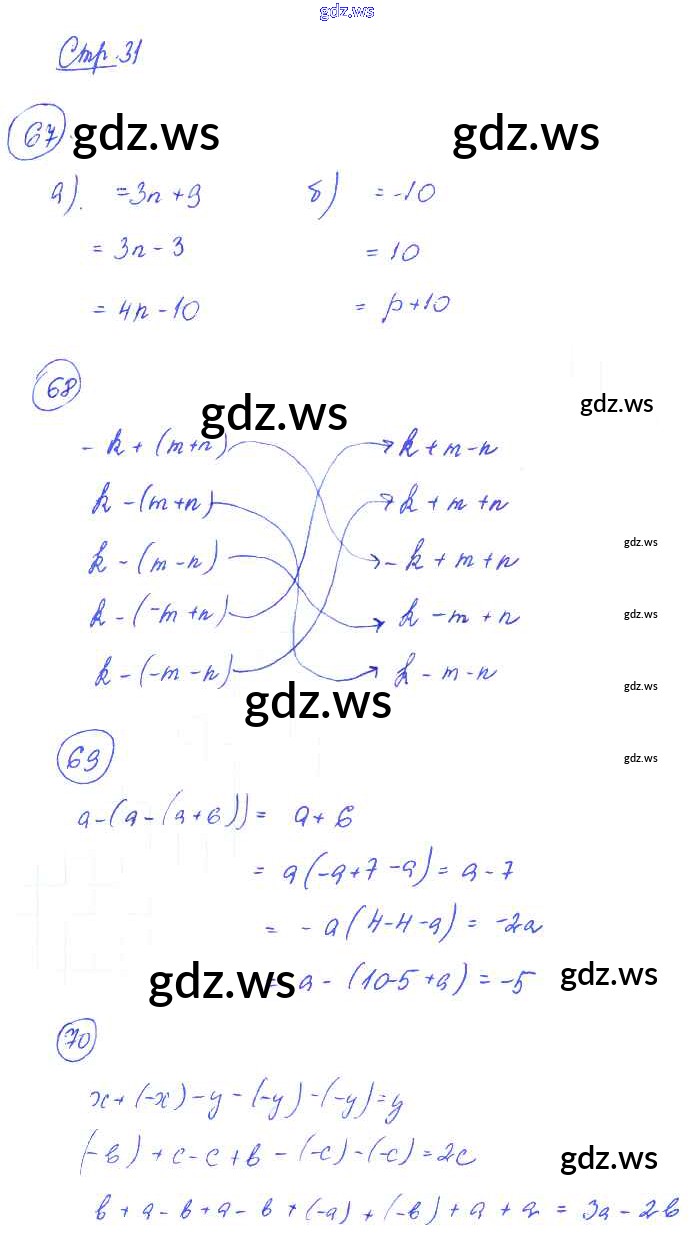 gdz.ws
Стр. 31
67 gdz.ws gdz.ws
а). = 3n + 9 б) = -10
= 3n - 3 = 10
= 4n - 10 = p + 10
68
gdz.ws gdz.ws
- k + (m + n) k + m - n
k - (m + n) k + m + n
gdz.ws
k - (m - n) - k + m + n
k - (-m + n) k - m + n gdz.ws
k - (-m - n) k - m - n gdz.ws
gdz.ws
69 gdz.ws
a - (a - (a + 6)) = a + 6
= a (-a + 7 - a) = a - 7
= - a (4 - 4 - a) = -2a
gdz.ws = a - (10 - 5 + a) = -5 gdz.ws
70
x + (-x) - y - (-y) - (-y) = y
(-b) + c - c + b - (-c) - (-c) = 2c gdz.ws
b + a - b + a - b + (-a) + (-b) + a + a = 3a - 2b